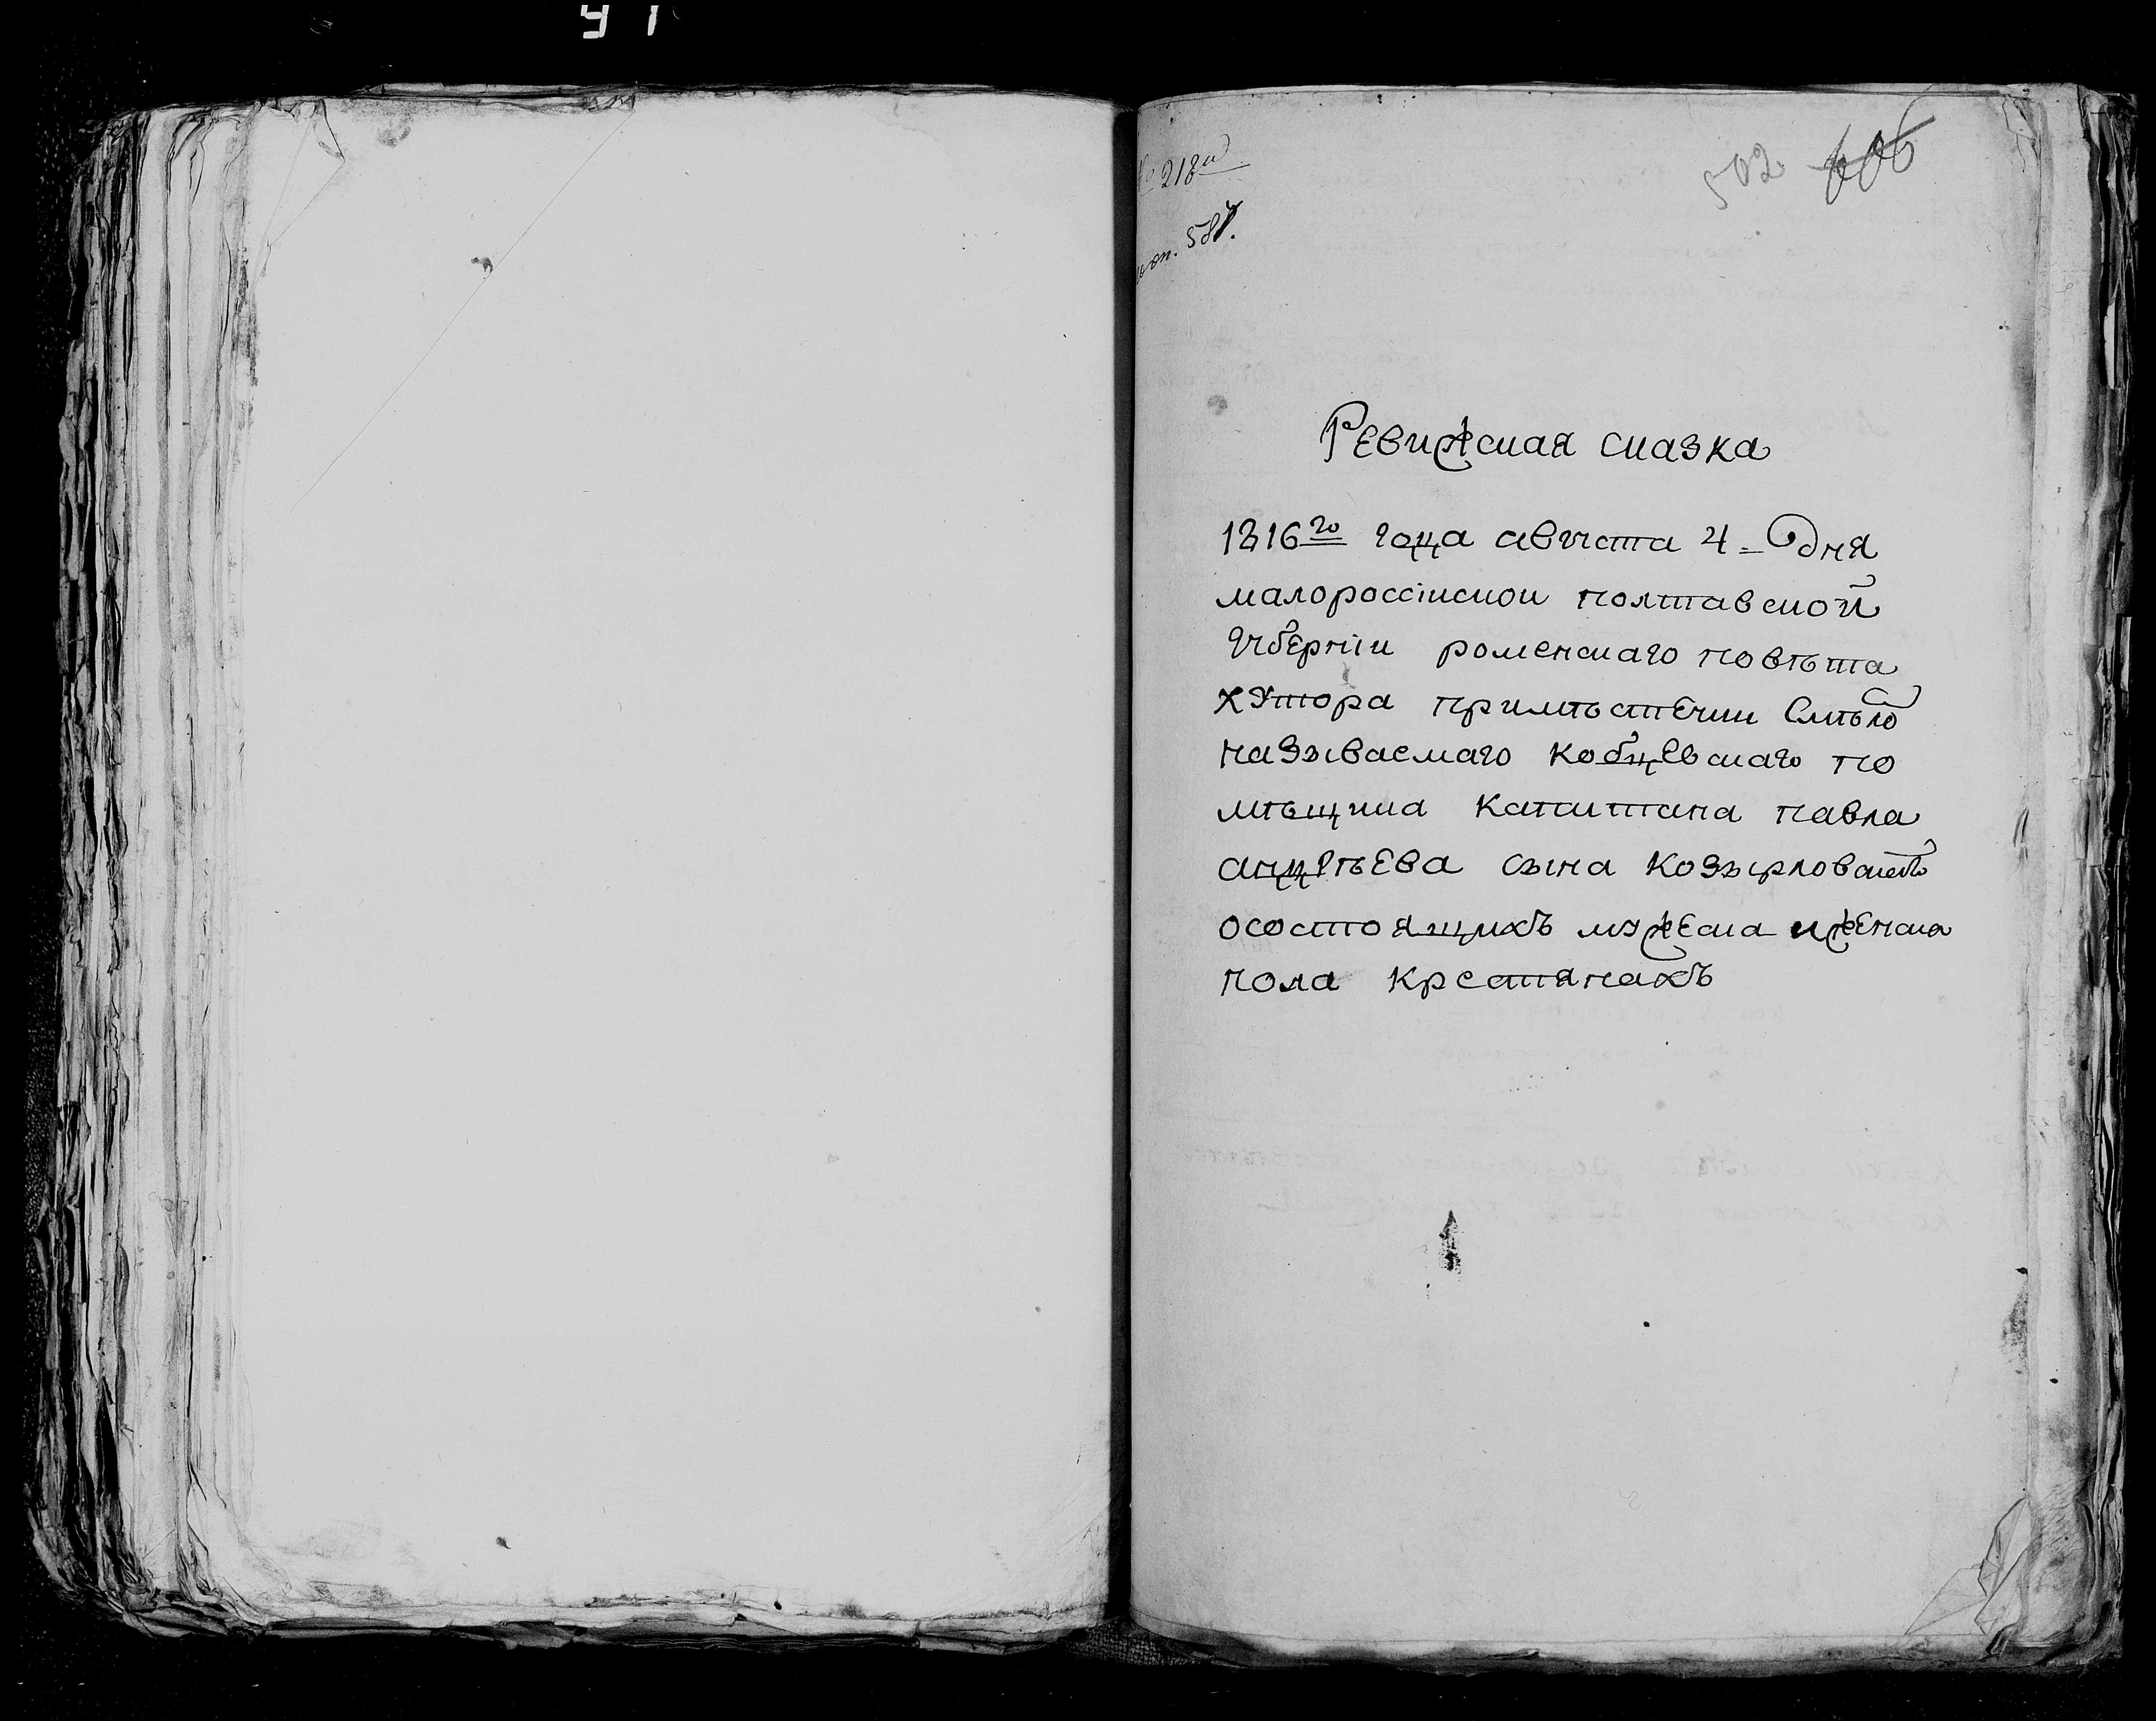 № 218й
по оп. 587.
502 606
Ревижская сказка
1816го года августа 4 = дня
малороссійской полтавской
губерніи роменскаго повѣта
хутора примѣстечки Смѣло
называемаго кобцевскаго по
мѣщика капитана павла
андрѣева сына козырловскаго
осостоящихъ мужеска иженска
пола крестянахъ